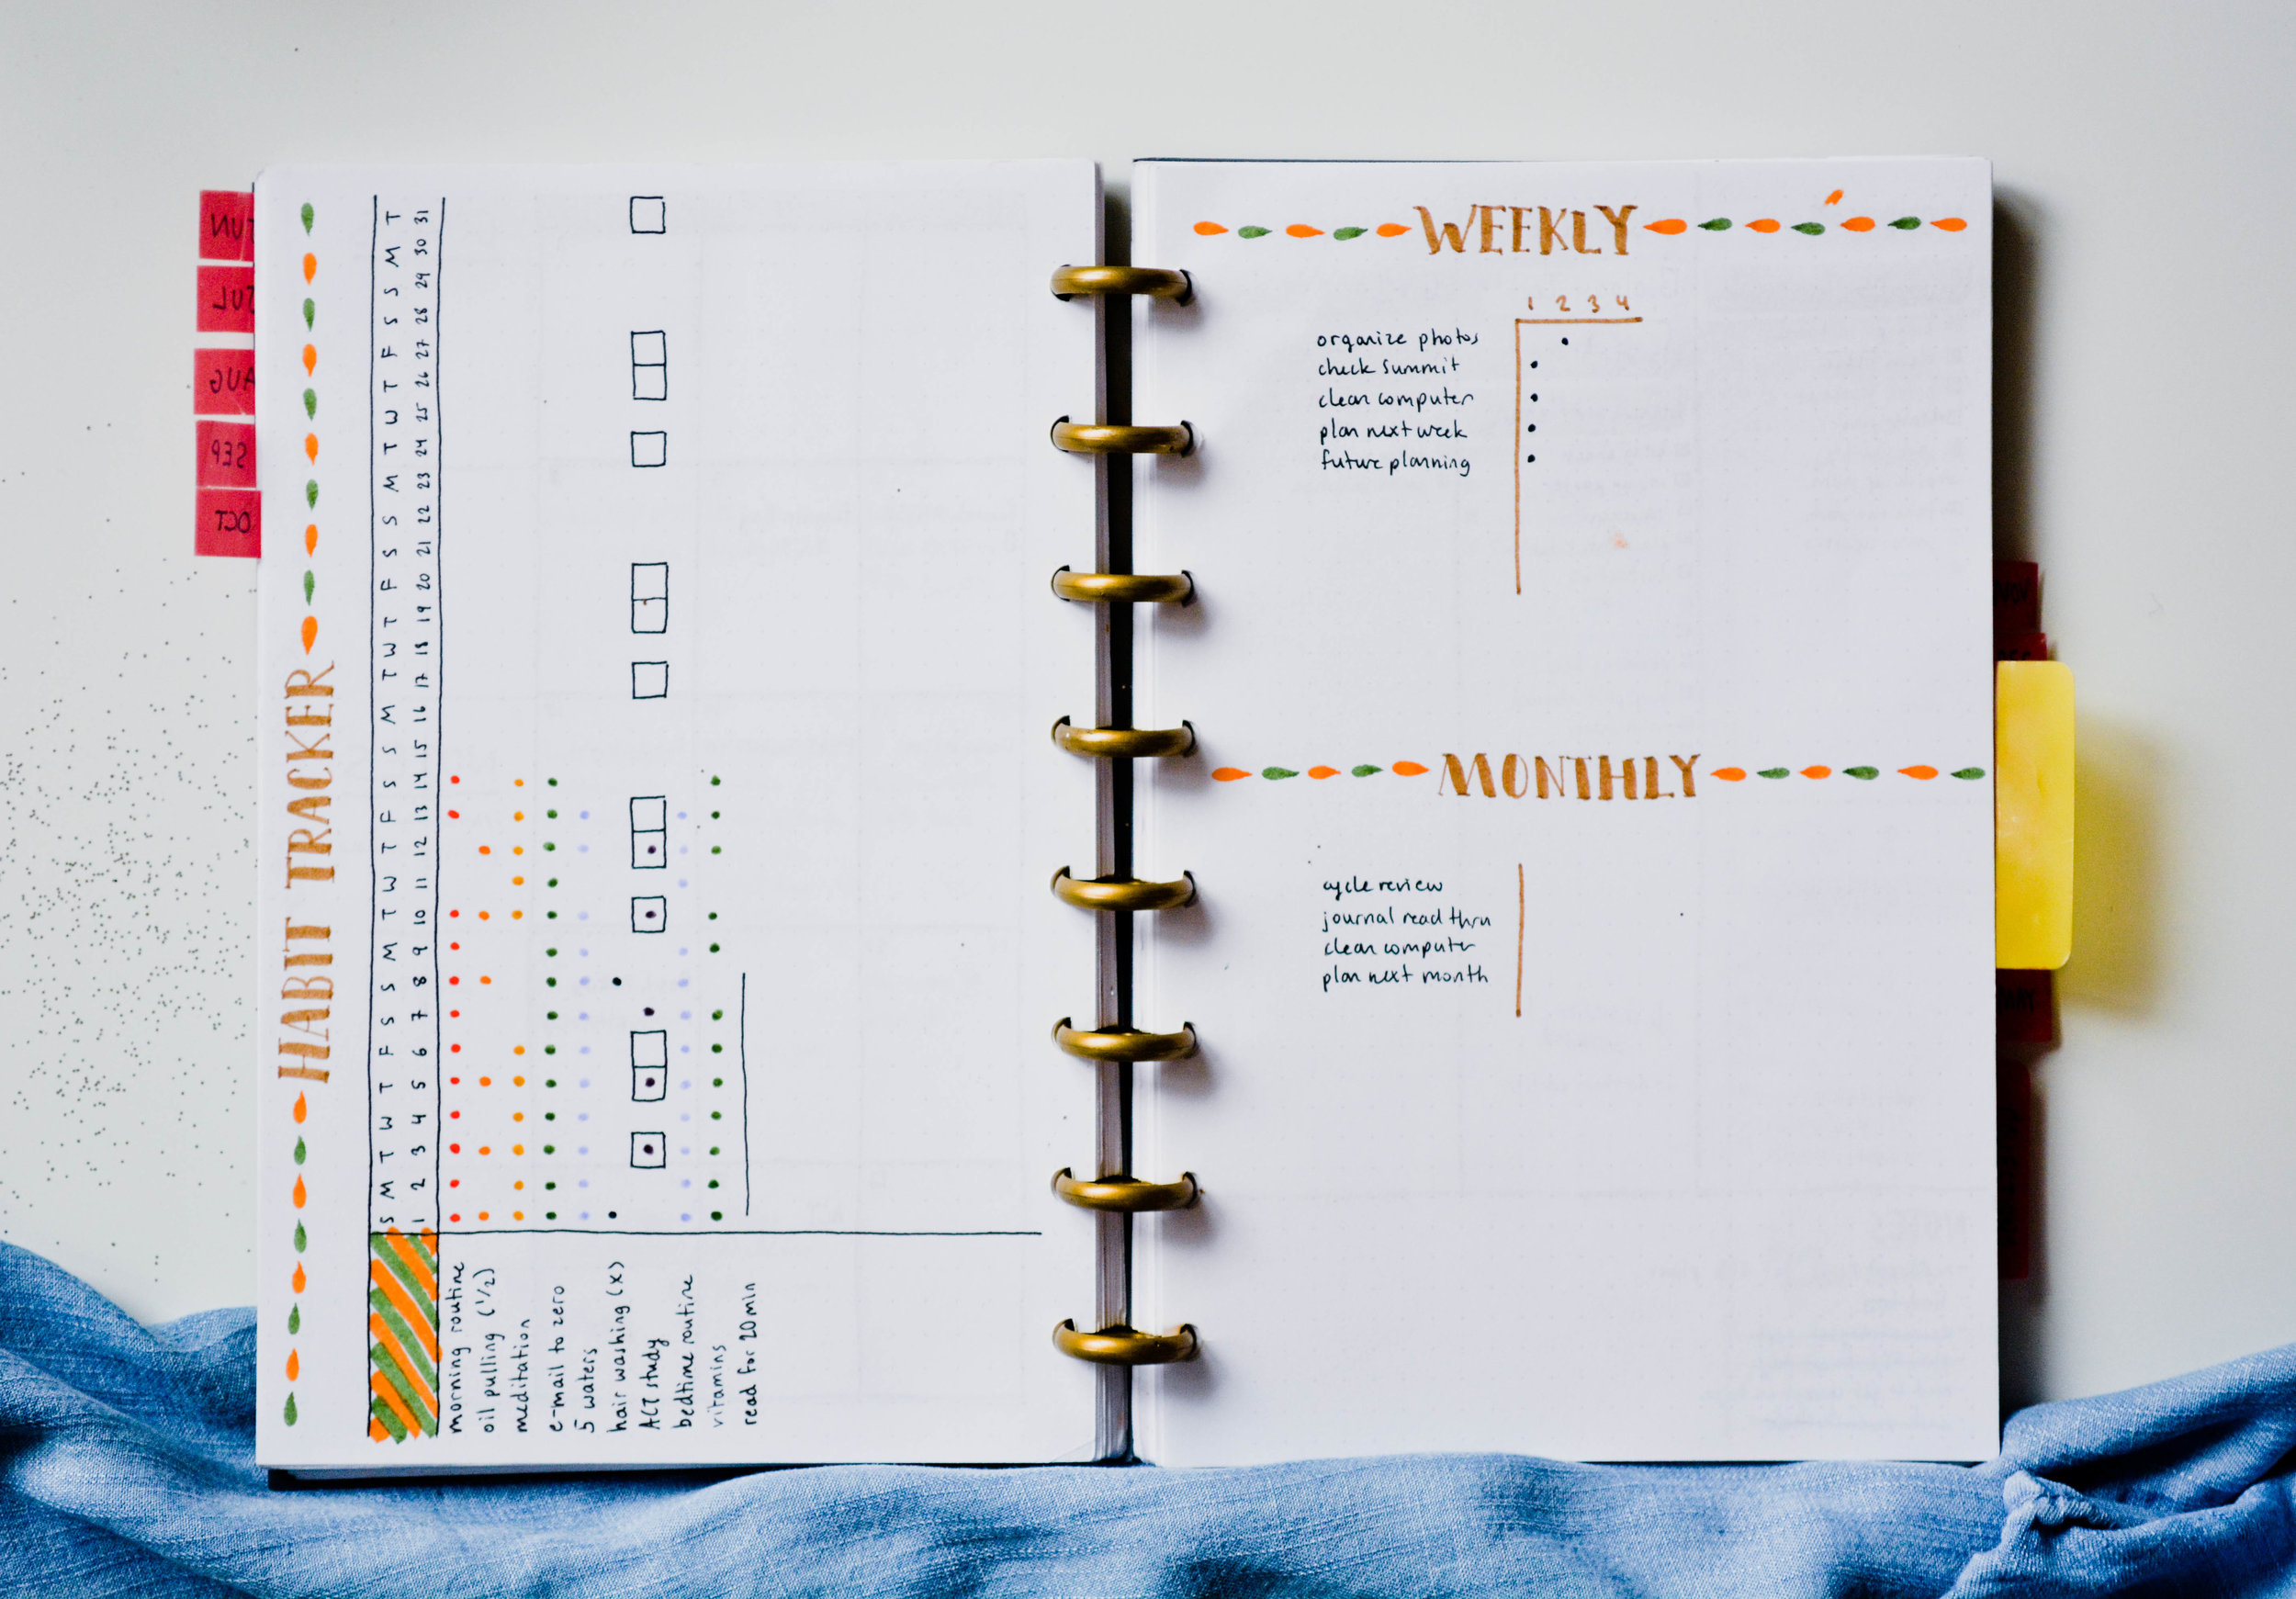 JUN
JUL
AUG
SEP
OCT
HABIT TRACKER
S M T W T F S S M T W T F S S M T W T F S S M T W T F S S M T
1 2 3 4 5 6 7 8 9 10 11 12 13 14 15 16 17 18 19 20 21 22 23 24 25 26 27 28 29 30 31
morning routine
oil pulling (1/2)
meditation
e-mail to zero
5 waters
hair washing (x)
ACT study
bedtime routine
vitamins
read for 20 min
WEEKLY
1 2 3 4
organize photos
check summit
clean computer
plan next week
future planning
MONTHLY
cycle review
journal read thru
clean computer
plan next month